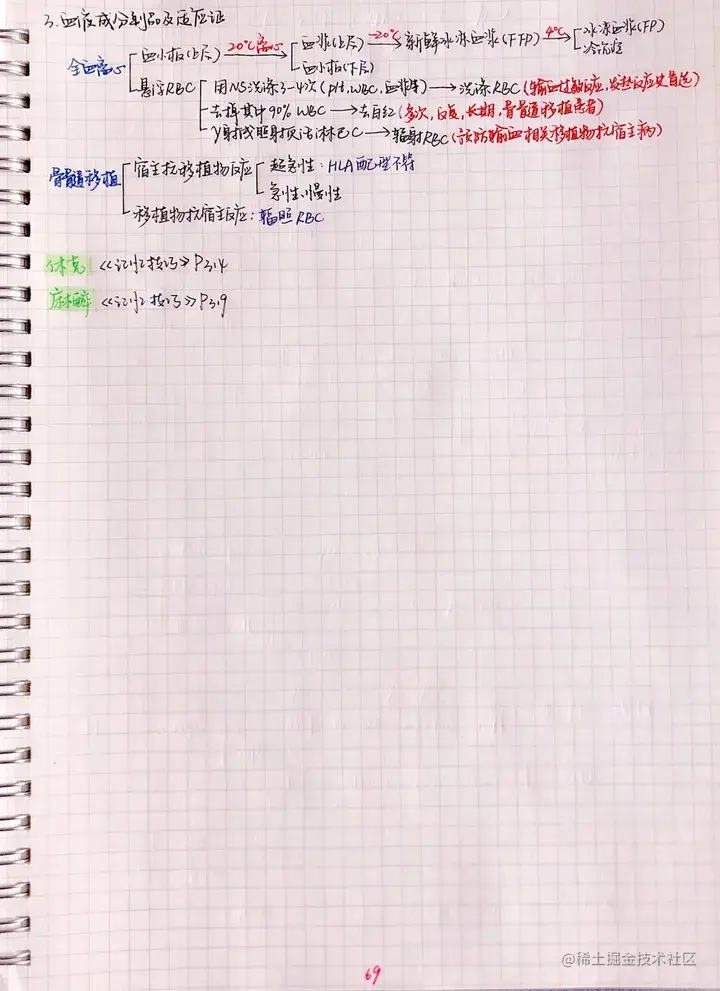 3.血液成分制品及适应证
全血离心
血小板(上层) 20℃离心 血浆(上层) -20℃ 新鲜冰冻血浆(FFP) 4℃ 冰冻血浆(FP)
血小板(下层) 冷沉淀
悬浮RBC 用NS洗涤3-4次(plt,WBC,血浆等) → 洗涤RBC(输血过敏反应,发热反应史首选)
去掉其中90%WBC → 去白红(多次,反复,长期,骨髓移植患者)
γ射线照射灭活淋巴C → 辐射RBC(预防输血相关移植物抗宿主病)
骨髓移植 宿主抗移植物反应 超急性:HLA配型不符
急性、慢性
移植物抗宿主反应:辐照RBC
休克 《记忆技巧》P314
麻醉 《记忆技巧》P319
69
@稀土掘金技术社区